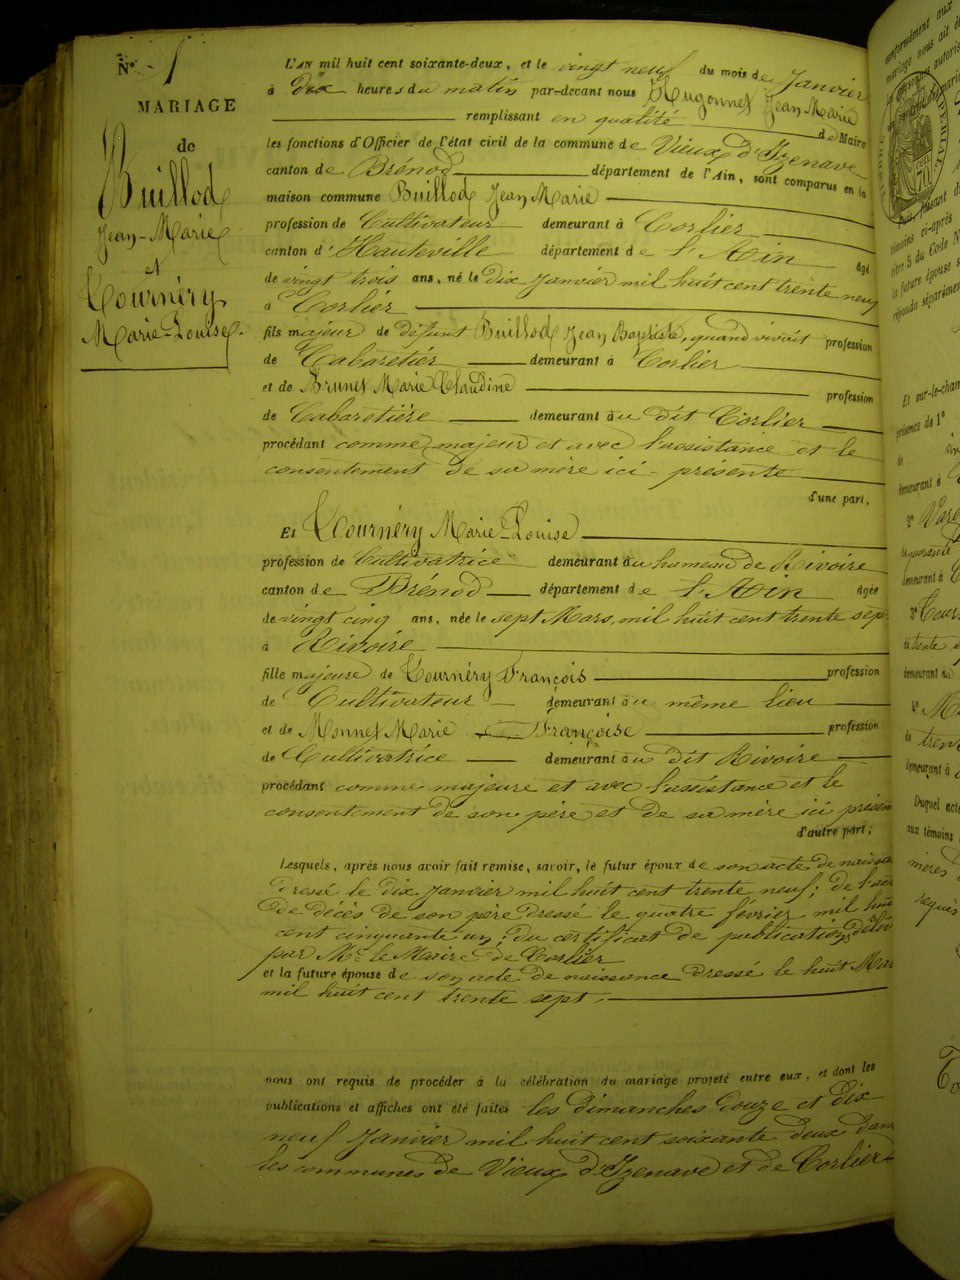 N° 1
MARIAGE
de
Buillod
Jean-Marie
et
Tournéry
Marie-Louise.
L'AN mil huit cent soixante-deux, et le vingt neuf du mois de Janvier
à dix heures du matin par-devant nous Hugonnet Jean Marie
remplissant en qualité de Maire
les fonctions d'Officier de l'état civil de la commune de Vieux d'Izenave
canton de Brénod département de l'Ain, sont comparus en la
maison commune Buillod Jean Marie
profession de Cultivateur demeurant à Corlier
canton d'Hauteville département de l'Ain âgé
de vingt trois ans, né le dix Janvier mil huit cent trente neuf
à Corlier
fils majeur de défunt Buillod Jean Baptiste, quand vivait profession
de Cabaretier demeurant à Corlier
et de Brunet Marie Claudine profession
de Cabaretière demeurant au dit Corlier
procédant comme majeur et avec l'assistance et le
consentement de sa mère ici présente
d'une part;
Et Tournéry Marie-Louise
profession de Cultivatrice demeurant au hameau de Rivoire
canton de Brénod département de l'Ain âgée
de vingt cinq ans, née le sept Mars, mil huit cent trente sept
à Rivoire
fille majeure de Tournéry François profession
de Cultivateur demeurant au même lieu
et de Monnet Marie Françoise profession
de Cultivatrice demeurant au dit Rivoire
procédant comme majeure et avec l'assistance et le
consentement de son père et de sa mère ici présen
d'autre part;
Lesquels, après nous avoir fait remise, savoir, le futur époux de son acte de naissa
dressé le dix Janvier mil huit cent trente neuf; de l'acte
de décès de son père dressé le quatre février mil huit
cent cinquante un; du certificat de publications déliv
par Mr. le Maire de Corlier
et la future épouse de son acte de naissance dressé le huit Mar
mil huit cent trente sept;
nous ont requis de procéder à la célébration du mariage projeté entre eux, et dont les
publications et affiches ont été faites les dimanches douze et dix
neuf Janvier mil huit cent soixante deux dans
les communes de Vieux d'Izenave et de Corlier